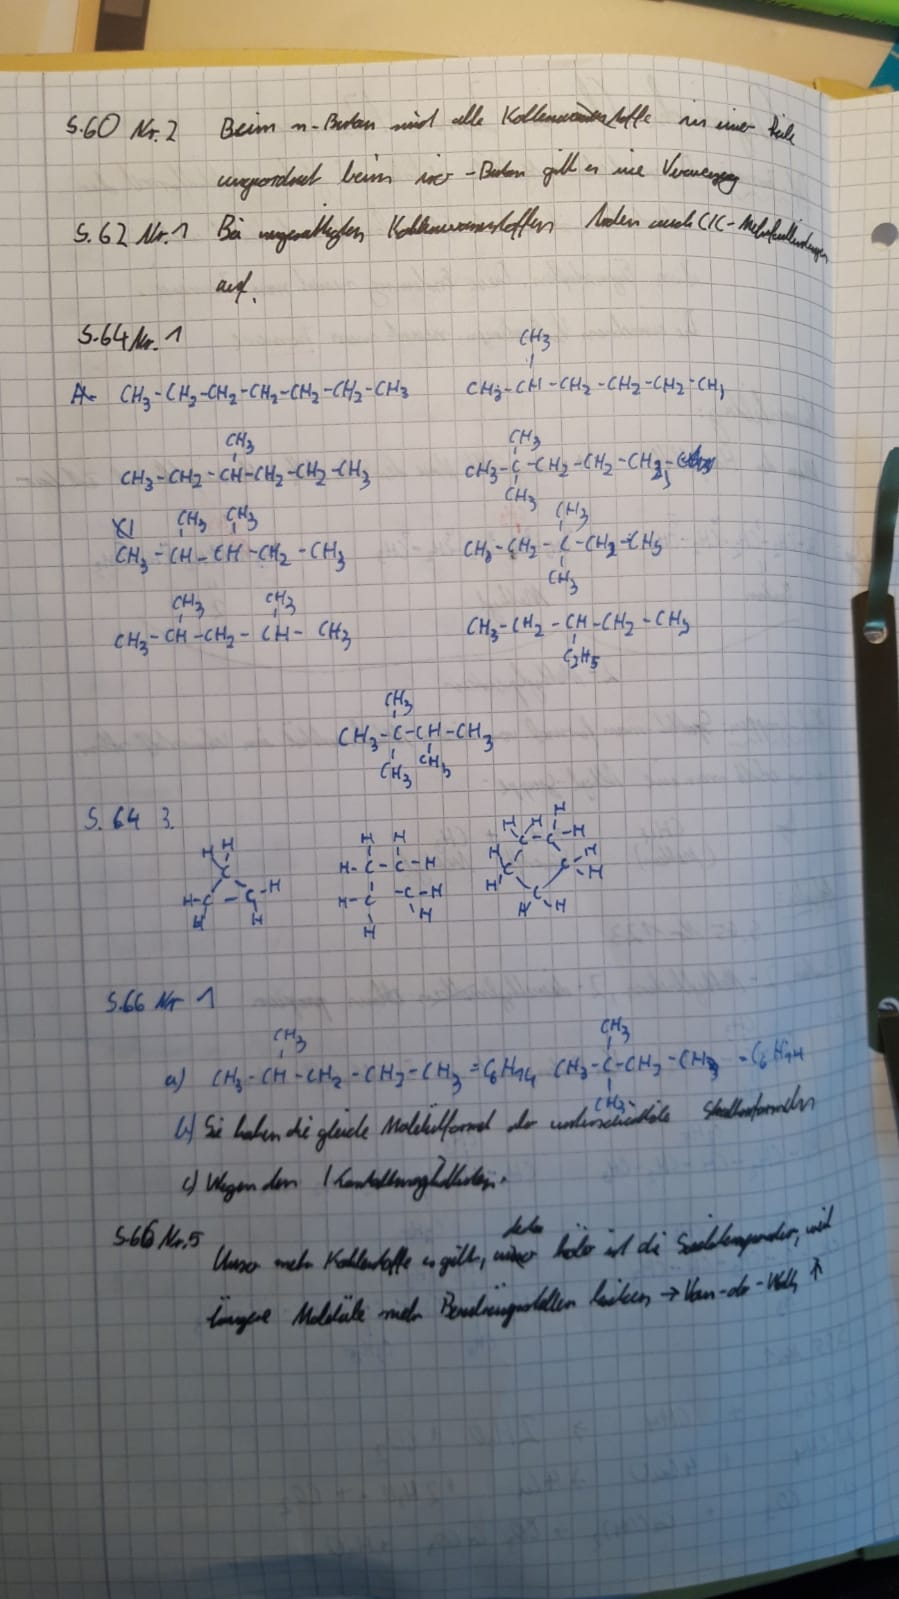 S.60 Nr.2 Beim n-Butan sind alle Kohlenwasserstoffe in einer Reihe
angeordnet beim iso-Butan gibt es eine Verzweigung
S.62 Nr.1 Bei ungesättigten Kohlenwasserstoffen treten auch C/C-Mehrfachbindungen
auf.
S.64 Nr. 1
CH3
CH3-CH2-CH2-CH2-CH2-CH2-CH3 CH3-CH-CH2-CH2-CH2-CH3
CH3 CH3
CH3-CH2-CH-CH2-CH2-CH3 CH3-C-CH2-CH2-CH3
CH3
CH3 CH3 CH3
CH3-CH-CH-CH2-CH3 CH3-CH2-C-CH2-CH3
CH3
CH3 CH3
CH3-CH-CH2-CH-CH3 CH3-CH2-CH-CH2-CH3
C2H5
CH3
CH3-C-CH-CH3
CH3 CH3
S. 64 3.
H H H H H H H
C H-C-C-H C-C-H
H-C-C-H H-C C-H H C C H
H H H H H C H
H H
S.66 Nr 1
CH3 CH3
a) CH3-CH-CH2-CH2-CH3 =C6H14 CH3-C-CH2-CH3 =C6H14
CH3
b) Sie haben die gleiche Molekülformel aber unterschiedliche Strukturformeln
c) Wegen den
S.66 Nr.5
desto
mehr Kohlenstoffe es gibt, höher ist die Siedetemperatur, weil
längere Moleküle mehr Berührungsstellen → Van-der-Waals ↑